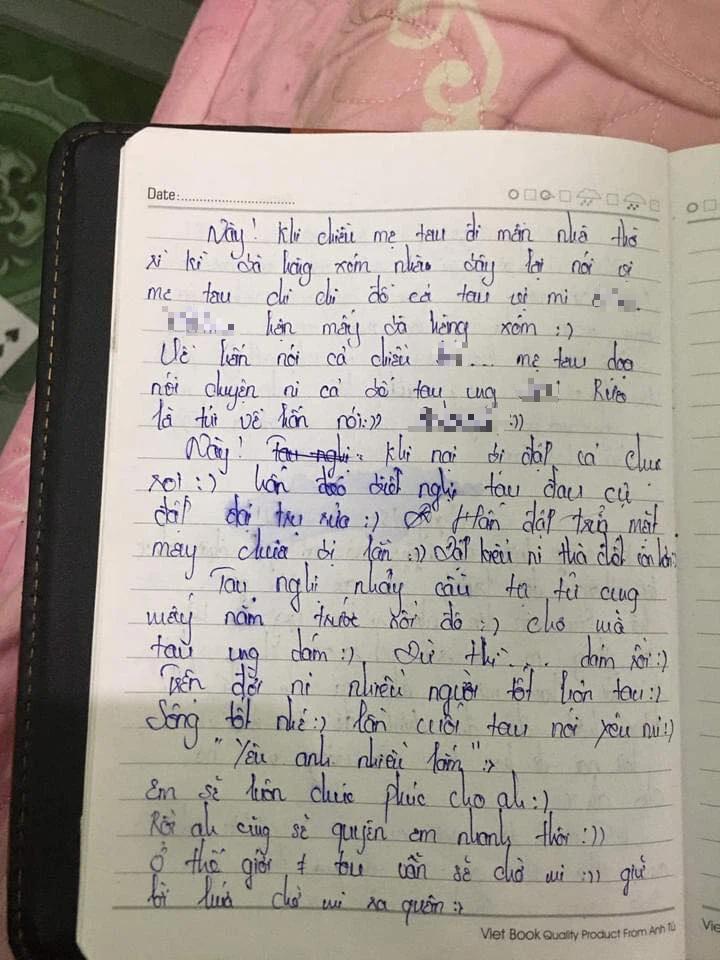 Date:
Này! Khi chiều mẹ tau đi mần nhà thờ
xi kì bà hàng xóm nhào đây lại nói vị
mẹ tau chi chi đó cả tau vị mi
hên mấy bà hàng xóm :)
Về hắn nói cả chiều ... mẹ tau dọa
nói chuyện ni cả bố tau ung Rứa
là túi về hắn nói :)) :))
Này! Tau nghi. Khi nại đi đập cả
rọi :) hắn biết nghị tau đau cứ
đập :) Hắn đập trả mặt
mày chưa bị lần :)) kiểu ni thà
Tau nghị nhảy cầu tạ tử cung
mấy năm trước rồi đó :) cho mà
tau ung dám :) Dừ thì.... dám rồi :)
Trên đời ni nhiều người tốt hơn tau :)
Sống tốt nhé :) lần cuối tau nói yêu mi :)
"Yêu anh nhiều lắm" :>
Em sẽ luôn chúc phúc cho ah :)
Rồi ah cũng sẽ quyên em nhanh thôi :))
Ở thế giới # tau vẫn sẽ chờ mi :)) giữ
lời hứa chờ mi ra quên :>
Viet Book Quality Product From Anh Tú